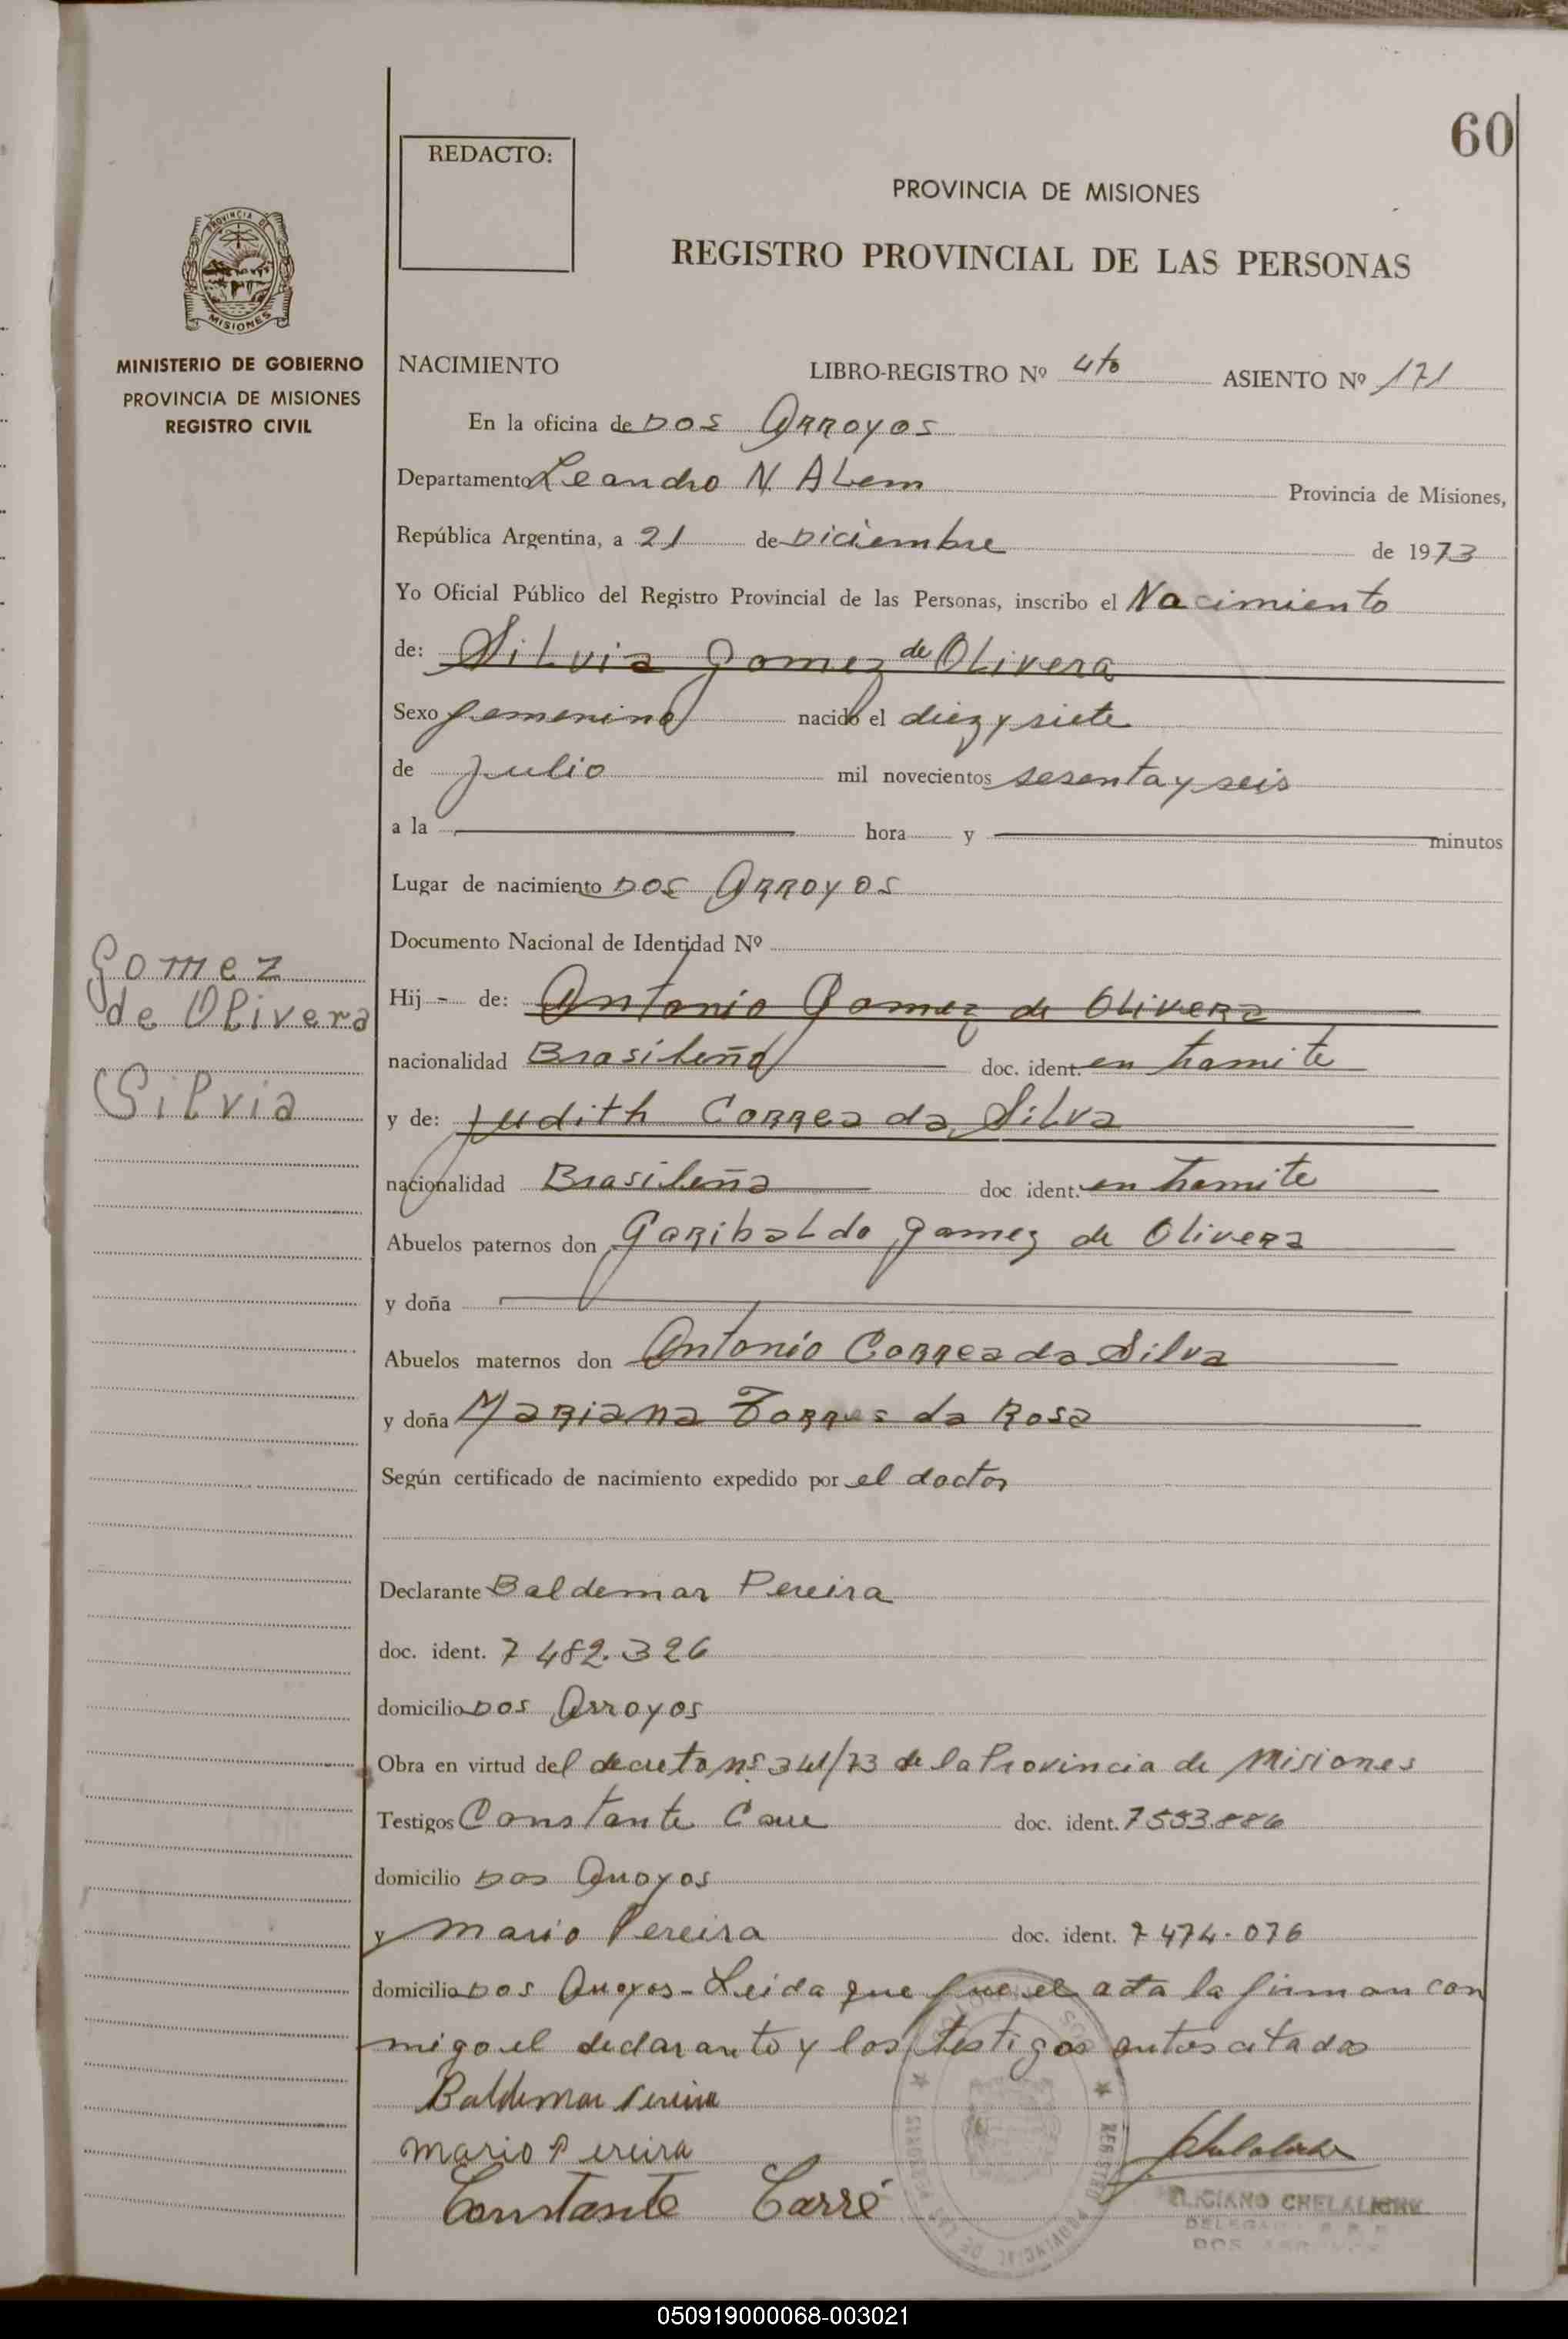 60
REDACTO:
PROVINCIA DE MISIONES
REGISTRO PROVINCIAL DE LAS PERSONAS
PROVINCIA DE
MISIONES
MINISTERIO DE GOBIERNO
PROVINCIA DE MISIONES
REGISTRO CIVIL
NACIMIENTO LIBRO-REGISTRO Nº 4to ASIENTO Nº 171
En la oficina de Dos Arroyos
Departamento Leandro N. Alem Provincia de Misiones,
República Argentina, a 21 de Diciembre de 1973
Yo Oficial Público del Registro Provincial de las Personas, inscribo el Nacimiento
de: Silvia Gomez de Olivera
Sexo femenino nacido el diez y siete
de Julio mil novecientos sesenta y seis
a la hora y minutos
Lugar de nacimiento Dos Arroyos
Documento Nacional de Identidad Nº
Gomez
de Olivera
Silvia
Hij - de: Antonio Gomez de Olivera
nacionalidad Brasileño doc. ident. en tramite
y de: Judith Correa da Silva
nacionalidad Brasileña doc. ident. en tramite
Abuelos paternos don Garibaldo Gomez de Olivera
y doña
Abuelos maternos don Antonio Correa da Silva
y doña Mariana Torres da Rosa
Según certificado de nacimiento expedido por el doctor
Declarante Baldemar Pereira
doc. ident. 7 482.326
domicilio Dos Arroyos
Obra en virtud del decreto nº 341/73 de la Provincia de Misiones
Testigos Constante Carre doc. ident. 7553.886
domicilio Dos Arroyos
y Mario Pereira doc. ident. 7 474.076
domicilio Dos Arroyos - Leida que fue el acta la firman con
migo el declarante y los testigos antes citados
Baldemar Pereira
Mario Pereira
Constante Carré
REGISTRO PROVINCIAL DE LAS PERSONAS
CHELALICHE
DOS ARROYOS
050919000068-003021